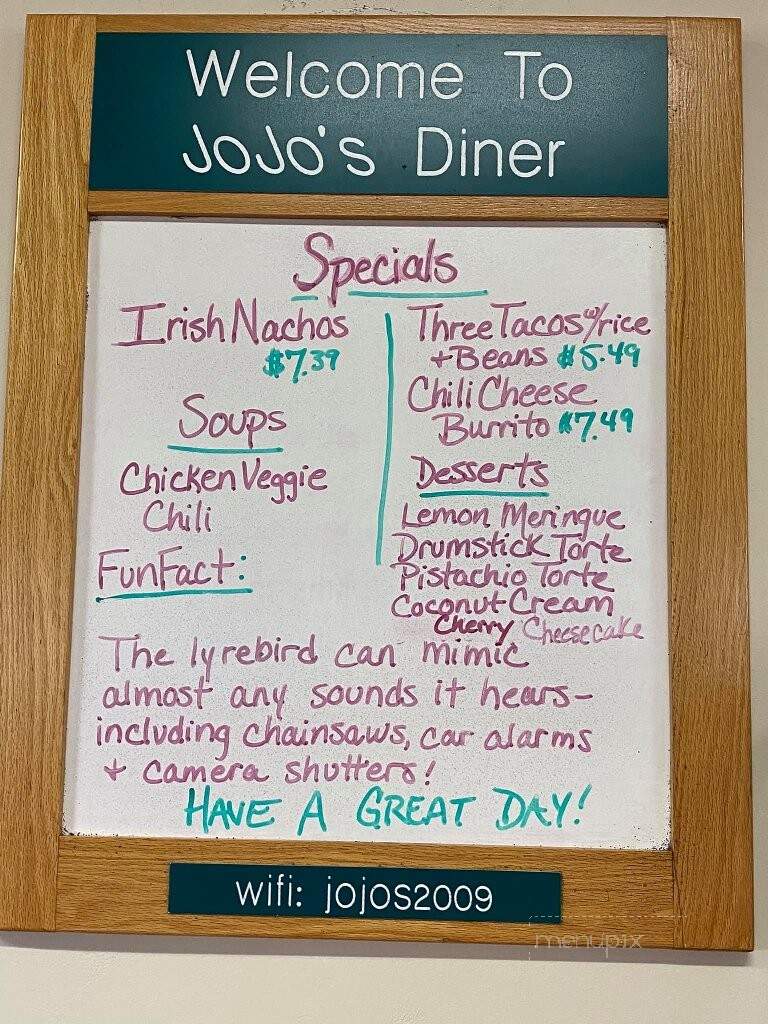 Welcome To
JoJo's Diner
Specials
Irish Nachos
$7.39
Soups
Chicken Veggie
Chili
Three Tacos w/rice
+ Beans $5.49
Chili Cheese
Burrito $7.49
Desserts
Lemon Meringue
Drumstick Torte
Pistachio Torte
Coconut Cream
Cherry Cheesecake
Fun Fact:
The lyrebird can mimic
almost any sounds it hears-
including chainsaws, car alarms
+ camera shutters!
HAVE A GREAT DAY!
wifi: jojos2009
menupix